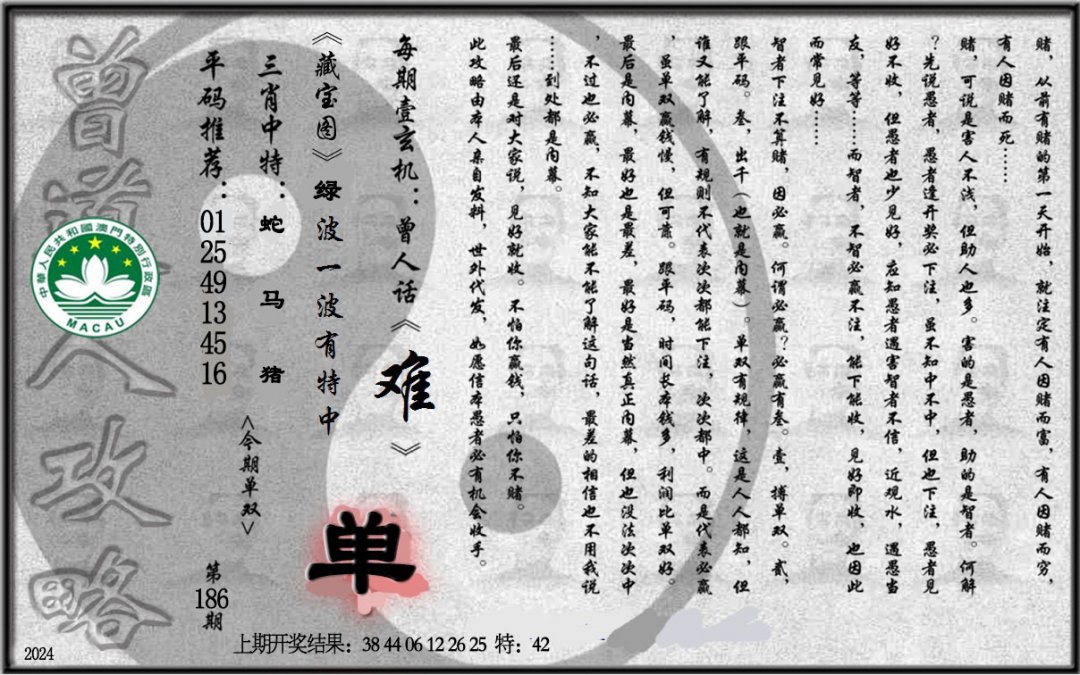 赌，从前有赌的第一天开始，就注定有人因赌而富，有人因赌而穷，
有人因赌而死……
赌，可说是害人不浅，但助人也多。害的是愚者，助的是智者。何解
？先说愚者，愚者逢开奖必下注，虽不知中不中，但也下注，愚者见
好不收，但愚者也少见好，应知愚者遇害智者不信，近观水，遇愚当
友，等等……而智者，不智必赢不注，能下能收，见好即收，也因此
而常见好……
智者下注不算赌，因必赢。何谓必赢？必赢有叁。壹，搏单双。贰，
跟平码。叁，出千（也就是内幕）。单双有规律，这是人人都知，但
谁又能了解，有规则不代表次次都能下注，次次都中。而是代表必赢
，虽单双赢钱慢，但可靠。跟平码，时间长本钱多，利润比单双好。
最后是内幕，最好也是最差，最好是当然真正内幕，但也没法次次中
，不过也必赢，不知大家能不能了解这句话，最差的相信也不用我说
……到处都是内幕。
最后还是对大家说，见好就收。不怕你赢钱，只怕你不赌。
此攻略由本人亲自发料，世外代发，如愿信本愚者必有机会收手。
每期壹玄机：曾人话《难》
《藏宝图》绿波一波有特中
三肖中特：蛇 马 猪
<今期单双>
单
平码推荐：01 25 49 13 45 16
第186期
曾道人攻略
中華人民共和國澳門特別行政區
MACAU
上期开奖结果：38 44 06 12 26 25 特：42
2024